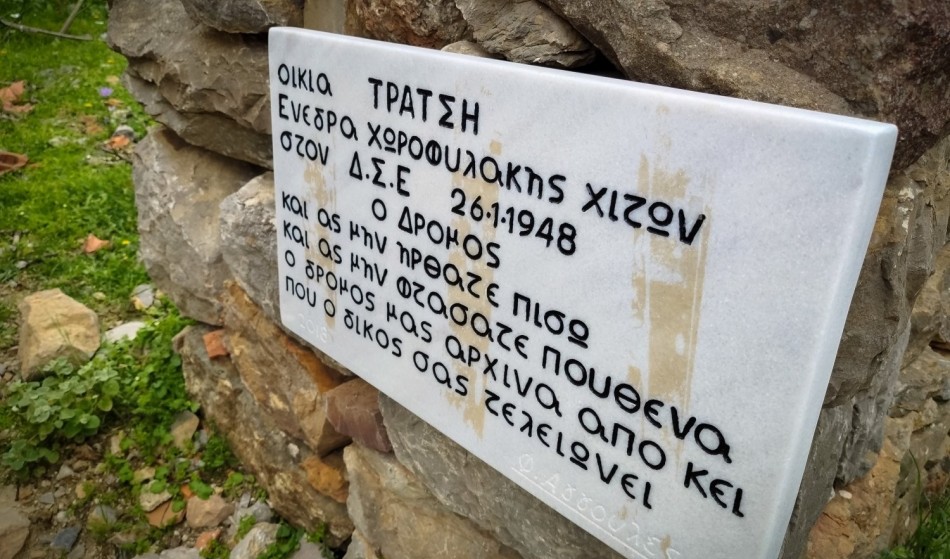 οικια ΤΡΑΤΣΗ
Ενεδρα χωροφυλακης χιτων
στον Δ.Σ.Ε 26·1·1948
Ο ΔΡΟΜΟΣ
και ας μην ηρθατε πισω
και ας μην φτασατε πουθενα
ο δρομος μας αρχινα απο κει
που ο δικος σας τελειωνει